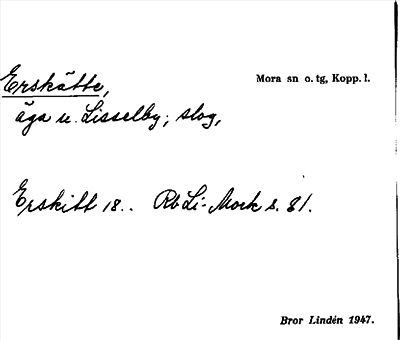 Erskätte,
Mora sn o. tg, Kopp. l.
äga u. Lisselby; slog,
Erskitt 18.. Rb Li-Mork s. 81.
Bror Lindén 1947.